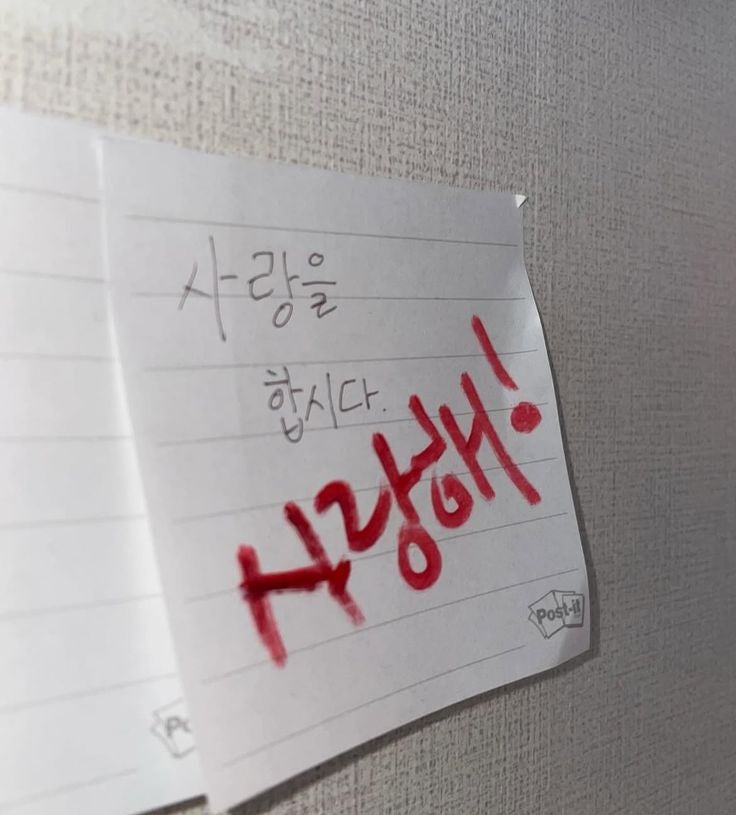 사랑을
합시다.
사랑해!
Post-it